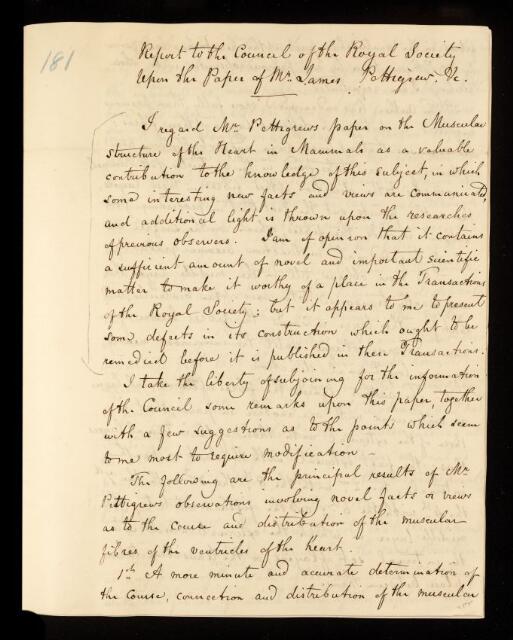 181
Report to the Council of the Royal Society
Upon the Paper of Mr. James Pettigrew. &c.
I regard Mr. Pettigrews paper on the Muscular
structure of the Heart in Mammals as a valuable
contribution to the knowledge of this subject, in which
some interesting new facts and views are communicated,
and additional light is thrown upon the researches
of previous observers. I am of opinion that it contains
a sufficient amount of novel and important scientific
matter to make it worthy of a place in the Transactions
of the Royal Society; but it appears to me to present
some defects in its construction which ought to be
remedied before it is published in these Transactions.
I take the liberty of subjoining for the information
of the Council some remarks upon this paper, together
with a few suggestions as to the points which seem
to me most to require modification –
The following are the principal results of Mr.
Pettigrews observations involving novel facts or views
as to the course and distribution of the muscular
fibres of the ventricles of the heart.
1st. A more minute and accurate determination of
the course, connection and distribution of the muscular